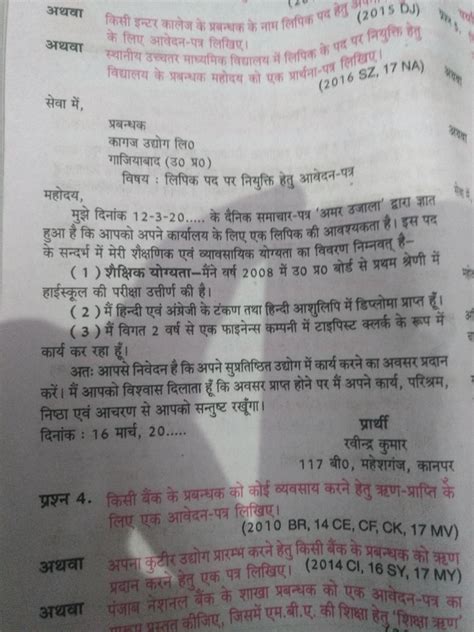 अथवा किसी इन्टर कालेज के प्रबन्धक के नाम लिपिक पद हेतु
(2015 DJ)
प्रश्न 5.
अथवा
के लिए आवेदन-पत्र लिखिए।
स्थानीय उच्चतर माध्यमिक विद्यालय में लिपिक के पद पर नियुक्ति हेतु
विद्यालय के प्रबन्धक महोदय को एक प्रार्थना-पत्र लिखिए।
(2016 SZ, 17 NA)
सेवा में,
प्रबन्धक
कागज उद्योग लि०
गाजियाबाद (उ० प्र०)
विषय : लिपिक पद पर नियुक्ति हेतु आवेदन-पत्र
महोदय,
मुझे दिनांक 12-3-20..... के दैनिक समाचार-पत्र 'अमर उजाला' द्वारा ज्ञात
हुआ है कि आपको अपने कार्यालय के लिए एक लिपिक की आवश्यकता है। इस पद
के सन्दर्भ में मेरी शैक्षणिक एवं व्यावसायिक योग्यता का विवरण निम्नवत् है–
(1) शैक्षिक योग्यता–मैंने वर्ष 2008 में उ० प्र० बोर्ड से प्रथम श्रेणी में
हाईस्कूल की परीक्षा उत्तीर्ण की है।
(2) मैं हिन्दी एवं अंग्रेजी के टंकण तथा हिन्दी आशुलिपि में डिप्लोमा प्राप्त हूँ।
(3) मैं विगत 2 वर्ष से एक फाइनेन्स कम्पनी में टाइपिस्ट क्लर्क के रूप में
कार्य कर रहा हूँ।
अतः आपसे निवेदन है कि अपने सुप्रतिष्ठित उद्योग में कार्य करने का अवसर प्रदान
करें। मैं आपको विश्वास दिलाता हूँ कि अवसर प्राप्त होने पर मैं अपने कार्य, परिश्रम,
निष्ठा एवं आचरण से आपको सन्तुष्ट रखूँगा।
दिनांक : 16 मार्च, 20.....
प्रार्थी
रवीन्द्र कुमार
117 बी०, महेशगंज, कानपर
प्रश्न 4. किसी बैंक के प्रबन्धक को कोई व्यवसाय करने हेतु ऋण-प्राप्ति के
लिए एक आवेदन-पत्र लिखिए।
(2010 BR, 14 CE, CF, CK, 17 MV)
अथवा अपना कुटीर उद्योग प्रारम्भ करने हेतु किसी बैंक के प्रबन्धक को ऋण
प्रदान करने हेतु एक पत्र लिखिए।
(2014 CI, 16 SY, 17 MY)
अथवा पंजाब नेशनल बैंक के शाखा प्रबन्धक को एक आवेदन-पत्र का
प्रारूप प्रस्तुत कीजिए, जिसमें एम.बी.ए. की शिक्षा हेतु 'शिक्षा ऋण'